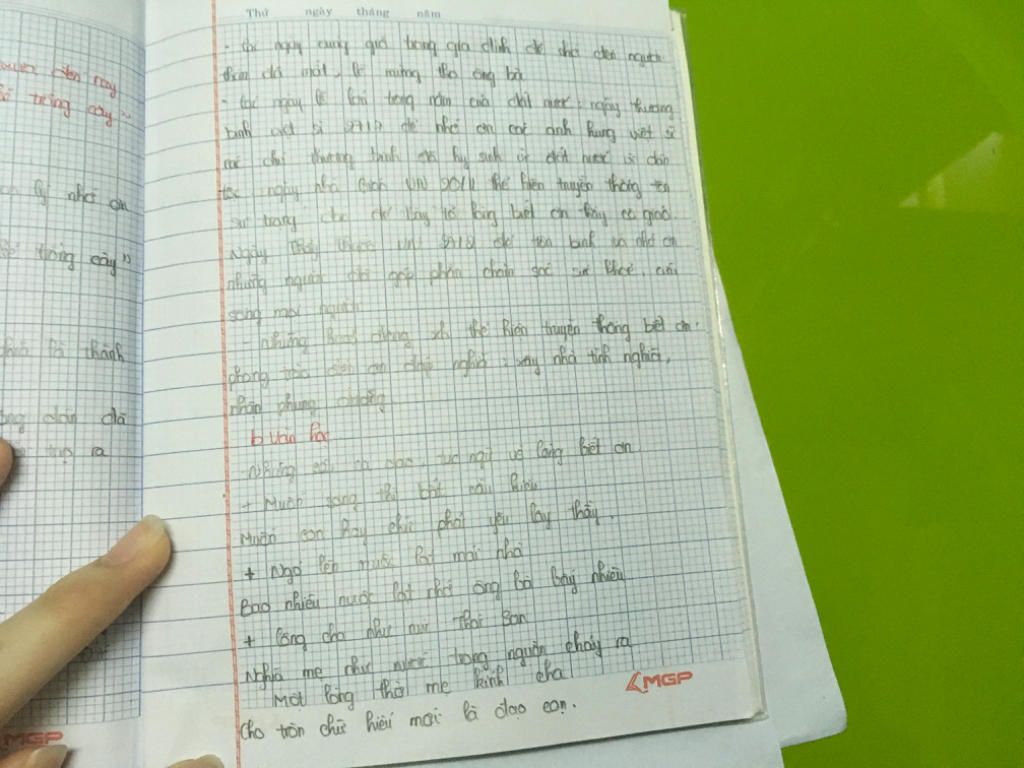 Thứ ngày tháng năm
- Các ngày cúng giỗ trong gia đình để nhớ đến người
thân đã mất, lễ mừng thọ ông bà
- Các ngày lễ lớn trong năm của đất nước: ngày thương
binh liệt sĩ 27/7 để nhớ ơn các anh hùng liệt sĩ
các chú thương binh đã hy sinh vì đất nước vì dân
tộc ngày nhà giáo VN 20/11 thể hiện truyền thống tôn
sư trọng để bày tỏ lòng biết ơn thầy cô giáo.
Ngày Thầy VN 27/2 để tôn vinh và nhớ ơn
những người đã góp phần chăm sóc sức khoẻ,
sống mọi người
những hoạt động xh thể hiện truyền thống biết ơn:
phong trào đền ơn đáp nghĩa: xây nhà tình nghĩa,
nhận phụng dưỡng
b văn học
Những câu ca dao, tục ngữ về lòng biết ơn
+ Muốn sang thì bắt cầu kiều
Muốn con hay chữ phải yêu lấy thầy.
+ Ngó lên nuộc lạt mái nhà
Bao nhiêu nuộc lạt nhớ ông bà bấy nhiêu
+ Công cha như núi Thái Sơn
Nghĩa mẹ như nước trong nguồn chảy ra
Một lòng thờ mẹ kính cha
Cho tròn chữ hiếu mới là đạo con.
MGP
đến nay
trồng cây"
nhớ ơn
trồng cây"
là thành
dân đã
ra
MGP